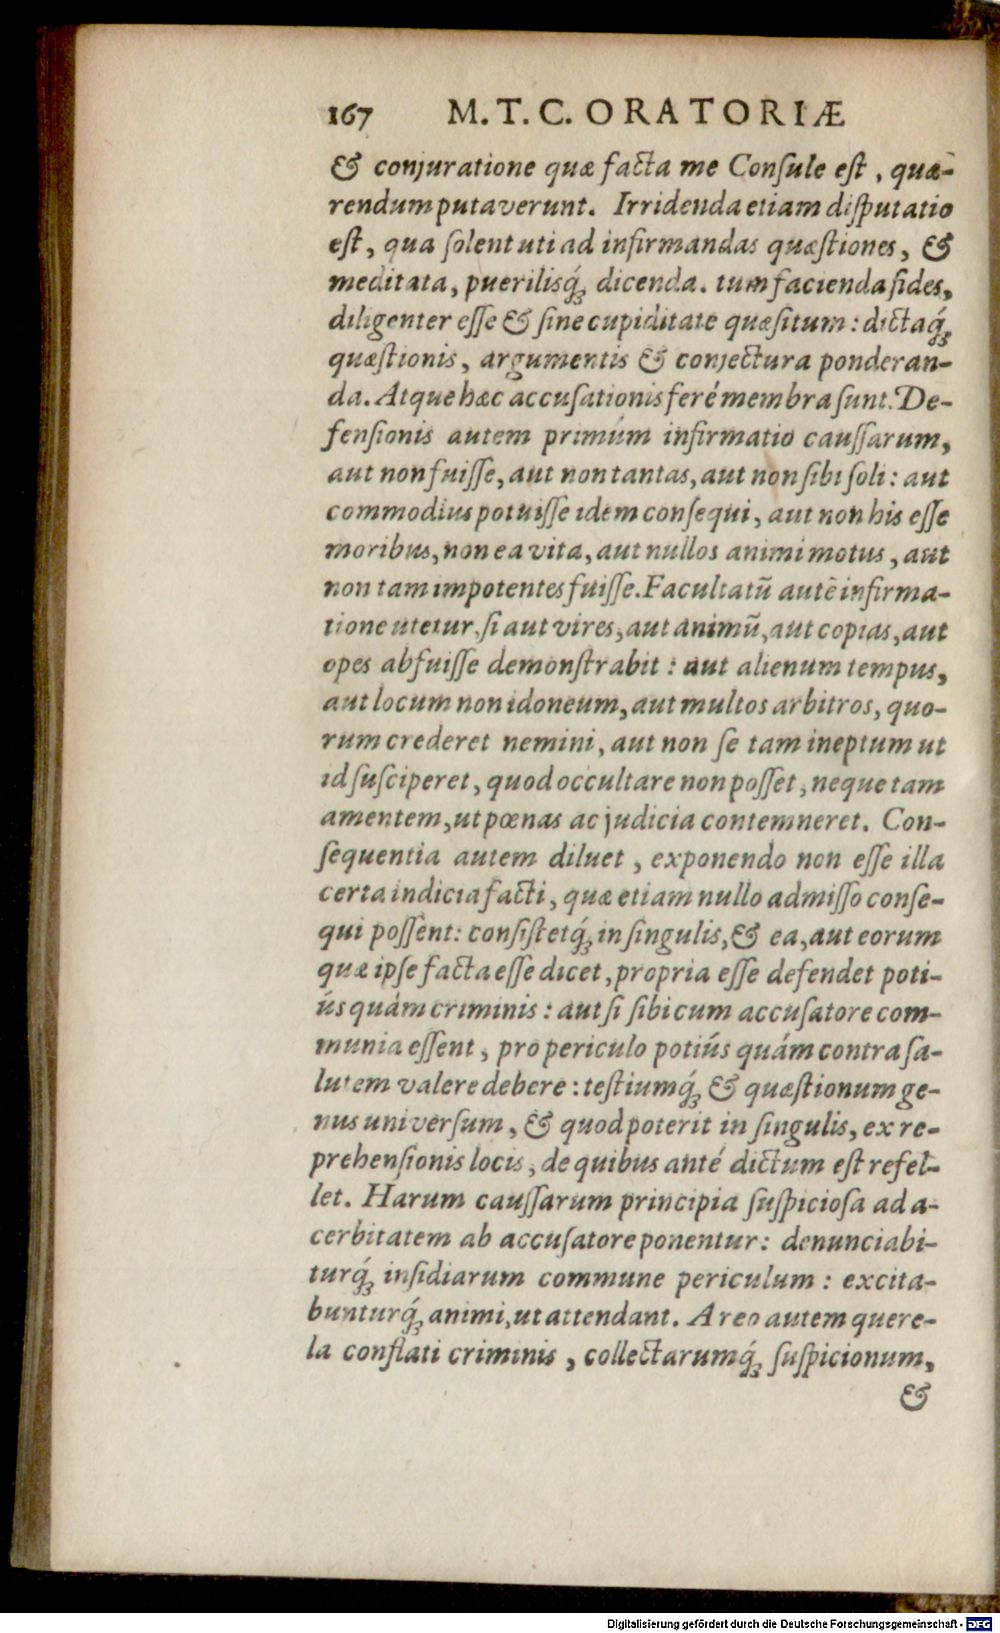 167 M. T. C. ORATORIÆ
& conjuratione quæ facta me Conſule eſt, quæ-
rendum putaverunt. Irridenda etiam diſputatio
eſt, qua ſolent uti ad infirmandas quæſtiones, &
meditata, puerilisq́ꝫ dicenda. tum facienda fides,
diligenter eſſe & ſine cupiditate quæſitum: dictaq́ꝫ
quæſtionis, argumentis & conjectura ponderan-
da. Atque hæc accuſationis feré membra ſunt. De-
fenſionis autem primúm infirmatio cauſſarum,
aut non fuiſſe, aut non tantas, aut non ſibi ſoli: aut
commodius potuiſſe idem conſequi, aut non his eſſe
moribus, non ea vita, aut nullos animi motus, aut
non tam impotentes fuiſſe. Facultatũ autẽ infirma-
tione utetur, ſi aut vires, aut animũ, aut copias, aut
opes abfuiſſe demonſtrabit: aut alienum tempus,
aut locum non idoneum, aut multos arbitros, quo-
rum crederet nemini, aut non ſe tam ineptum ut
id ſuſciperet, quod occultare non poſſet, neque tam
amentem, ut pœnas ac judicia contemneret. Con-
ſequentia autem diluet, exponendo non eſſe illa
certa indicia facti, quæ etiam nullo admiſſo conſe-
qui poſſent: conſiſtetq́ꝫ in ſingulis, & ea, aut eorum
quæ ipſe facta eſſe dicet, propria eſſe defendet poti-
ús quám criminis: aut ſi ſibi cum accuſatore com-
munia eſſent, pro periculo potiús quám contra ſa-
lutem valere debere: teſtiumq́ꝫ & quæſtionum ge-
nus univerſum, & quod poterit in ſingulis, ex re-
prehenſionis locis, de quibus anté dictum eſt refel-
let. Harum cauſſarum principia ſuſpicioſa ad a-
cerbitatem ab accuſatore ponentur: denunciabi-
turq́ꝫ inſidiarum commune periculum: excita-
bunturq́ꝫ animi, ut attendant. A reo autem quere-
la conflati criminis, collectarumq́ꝫ ſuſpicionum,
&
Digitalisierung gefördert durch die Deutsche Forschungsgemeinschaft - DFG